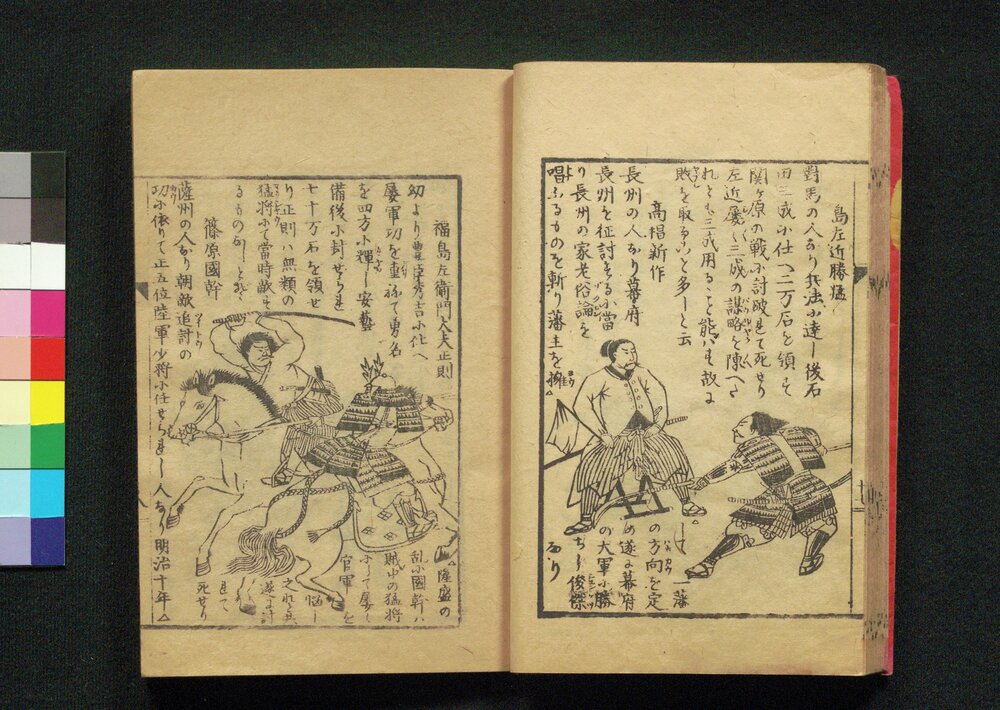 島左近勝猛
對馬の人なり兵法に達し後石
田三成に仕へ二万石を領す
関ヶ原の戦に討破られて死せり
左近屡々三成の謀略を陳べた
れども三成用ることを能はず故に
敗を取ること多しと云
高椙新作
長州の人なり幕府
長州を征討するに當
り長州の家老俗論を
唱ふるものを斬り藩主を擁△
△し一藩
の方向を定
め遂に幕府
の大軍に勝
ちし俊傑
なり
福島左衛門大夫正則
幼より豊臣秀吉に仕へ
屡軍功を重ねて勇名
を四方に輝し安藝
備後に封せられ
七十万石を領せ
り正則ハ無類の
猛将にて當時敵す
るものなしとぞ
篠原國幹
薩州の人なり朝敵追討の
功に依りて正五位陸軍少将に任せられし人なり明治十年△
△隆盛の
乱に國幹ハ
賊中の猛将
にして屡々
官軍を
悩し
之れ共
遂に討
れて
死せり